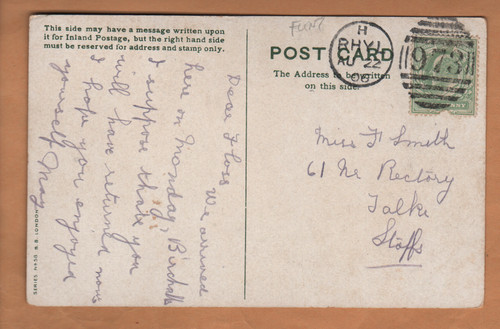 This side may have a message written upon
it for Inland Postage, but the right hand side
must be reserved for address and stamp only.
Dear Floss We arrived
here on Monday, Birchalls
I suppose that you
will have returned now
I hope you enjoyed
yourself May
SERIES N450 B.B. LONDON
FLINT
POST CARD
The Address to be written
on this side.
H
RHYL
AU 22
05
973
Miss F Smith
61 Nr Rectory
Talke
Staffs